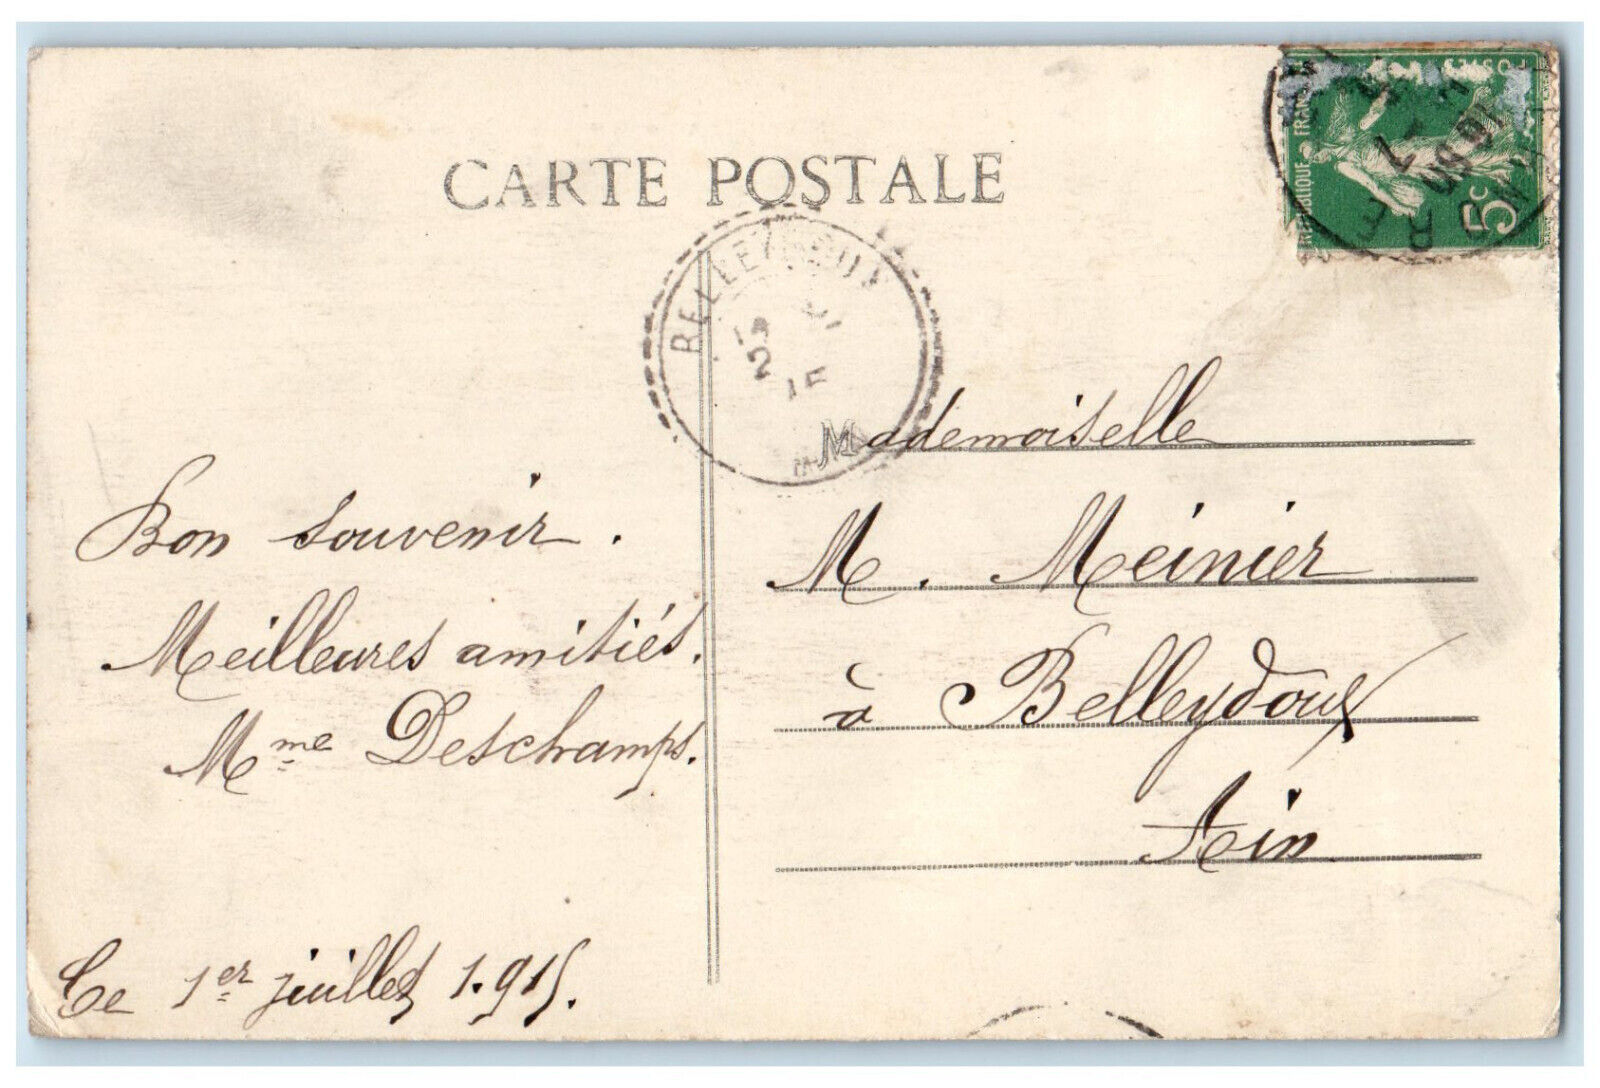 CARTE POSTALE
POSTES
REPUBLIQUE FRANÇAISE
5c
BELLEYDOUX
Mademoiselle
M. Meinier
à Belleydoux
Ain
Bon souvenir.
Meilleures amitiés.
Mme Deschamps.
Ce 1er juillet 1.915.